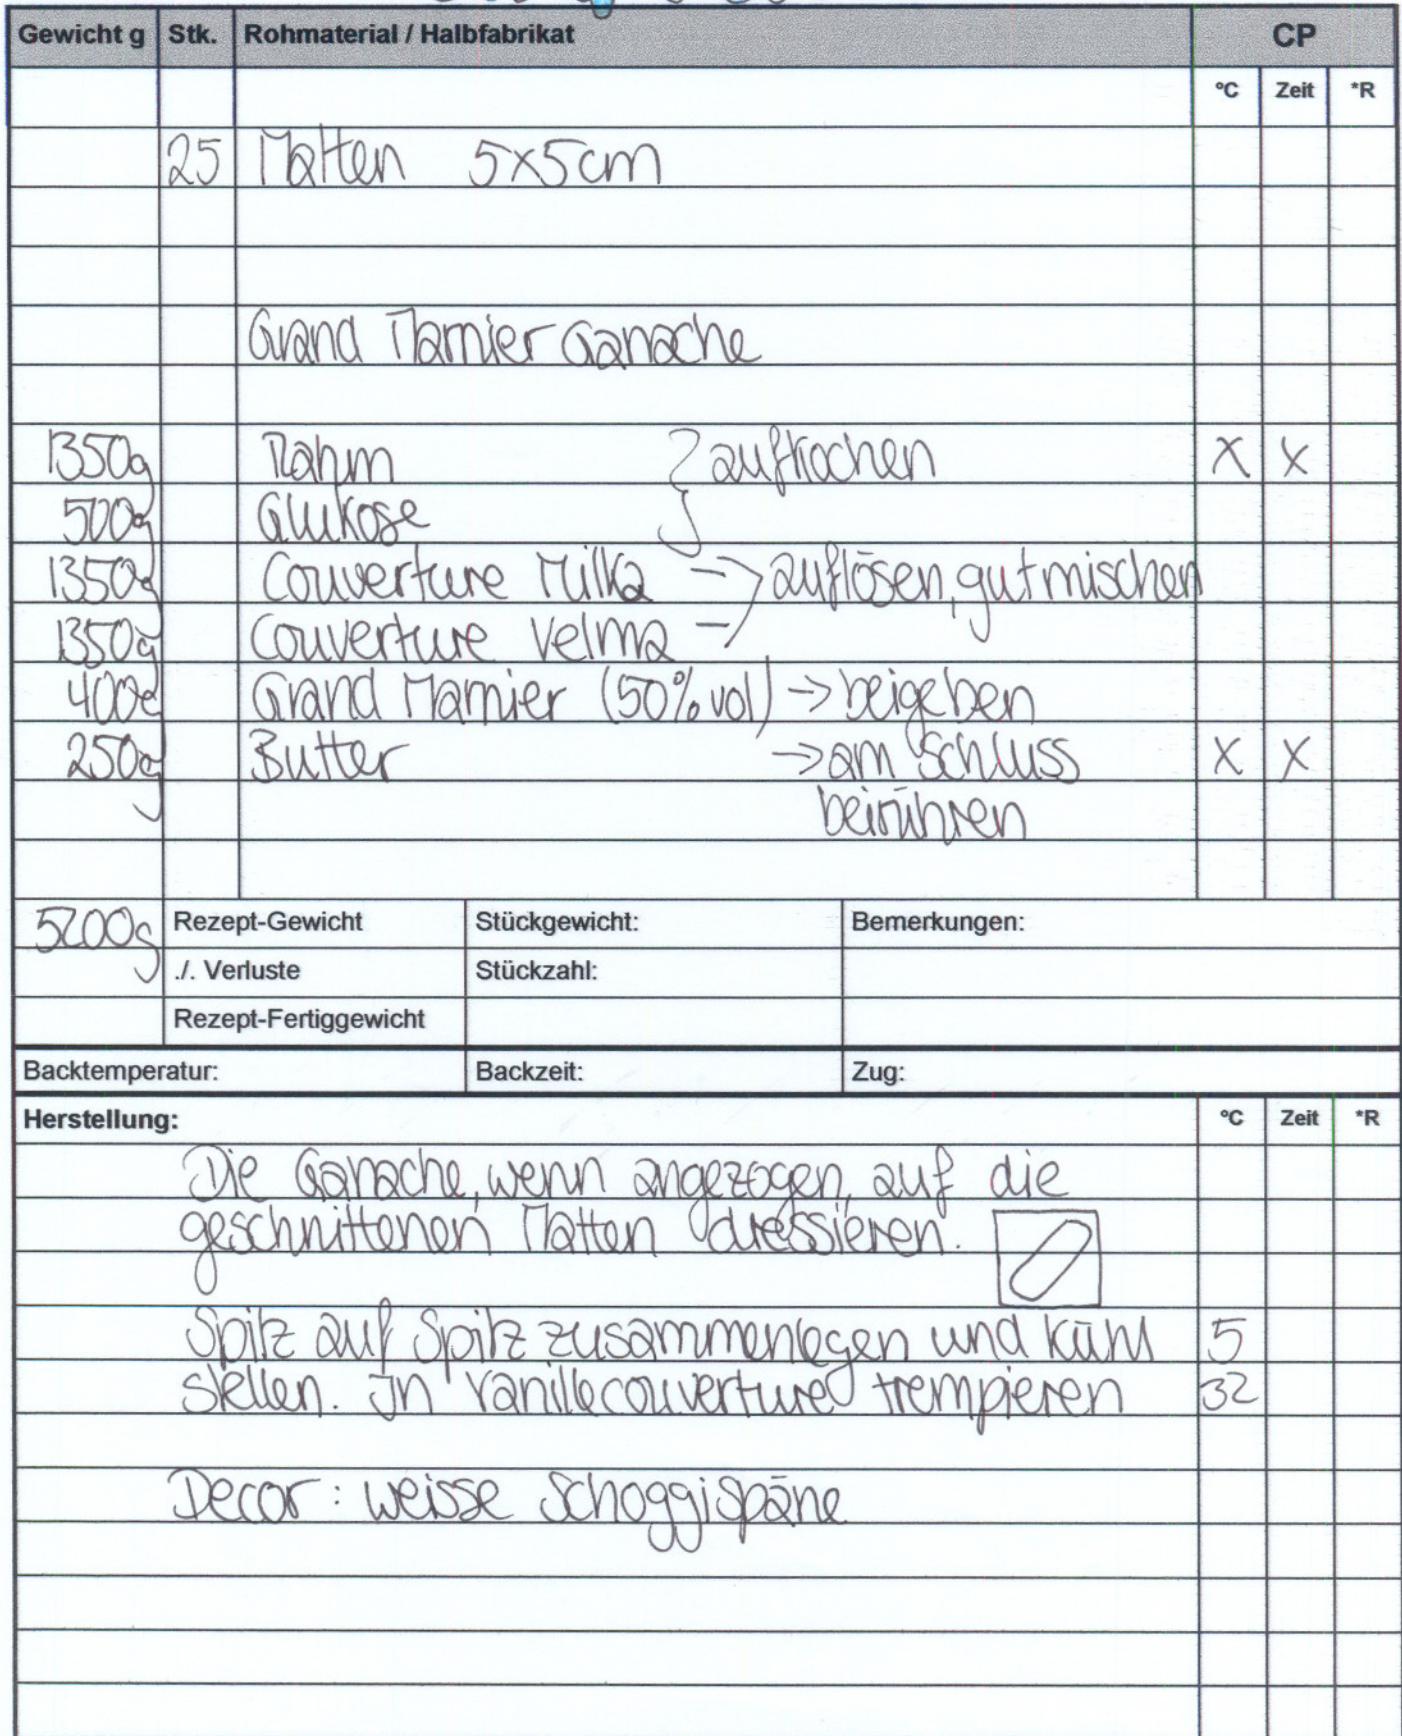 Gewicht g Stk. Rohmaterial / Halbfabrikat CP
°C Zeit *R
25 Matten 5x5cm
Grand Marnier Ganache
1350g Rahm } aufkochen x x
500g Glukose
1350g Couverture Milka -> auflösen, gut mischen
1350g Couverture Velma -
400g Grand Marnier (50% vol) -> beigeben
250g Butter -> am Schluss x x
beirühren
5200g Rezept-Gewicht Stückgewicht: Bemerkungen:
./. Verluste Stückzahl:
Rezept-Fertiggewicht
Backtemperatur: Backzeit: Zug:
Herstellung: °C Zeit *R
Die Ganache, wenn angezogen, auf die
geschnittenen Matten dressieren.
Spitz auf Spitz zusammenlegen und kühl 5
stellen. In Vanillecouverture trempieren 32
Decor: weisse Schoggispäne